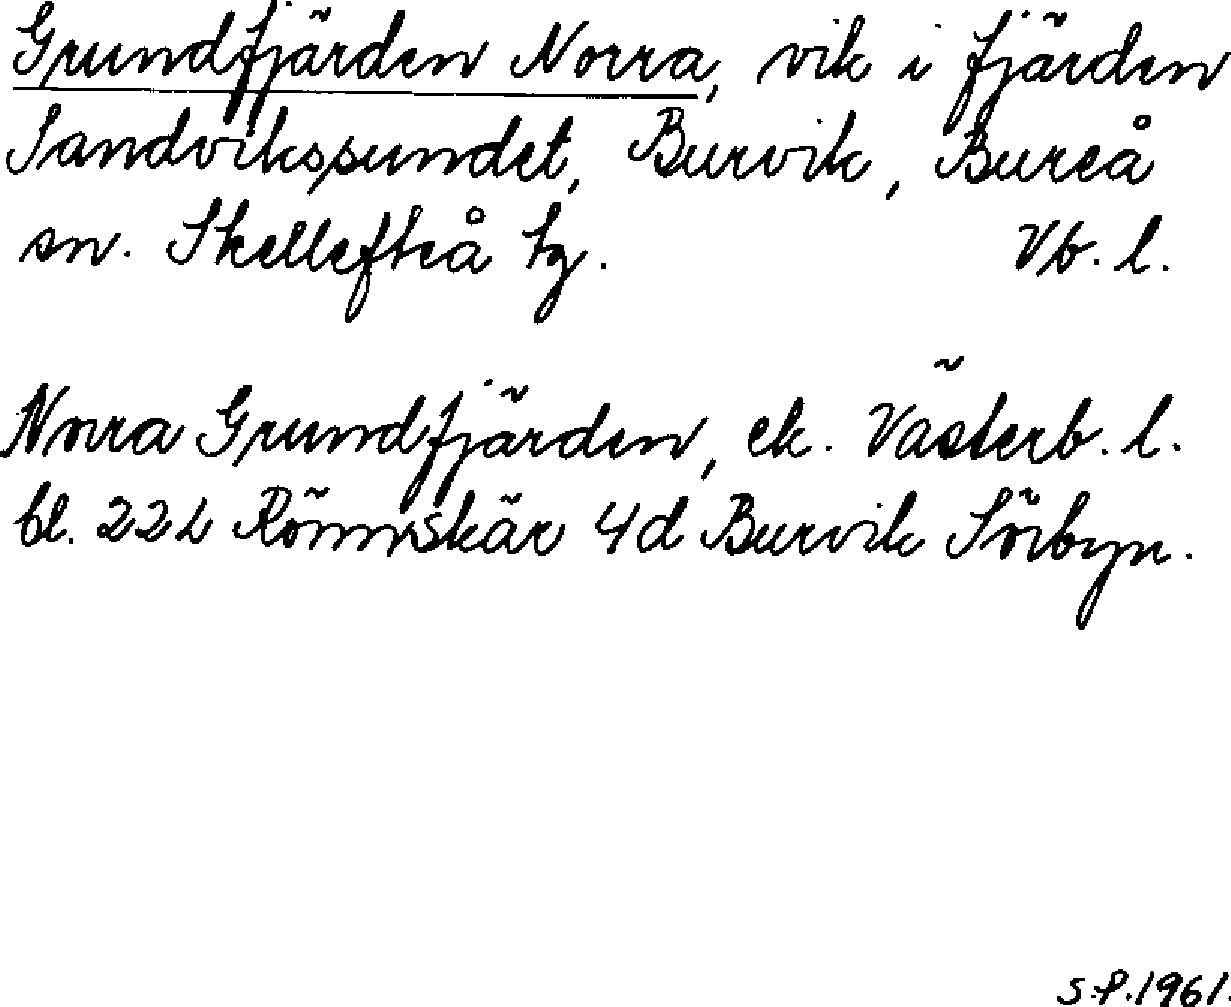 Grundfjärden Norra, vik i fjärden
Sandvikssundet, Burvik, Bureå
sn. Skellefteå tg. Vb. l.
Norra Grundfjärden, ek. Västerb. l.
bl. 22L Rönnskär 4d Burvik Sörbyn.
S.P. 1961.